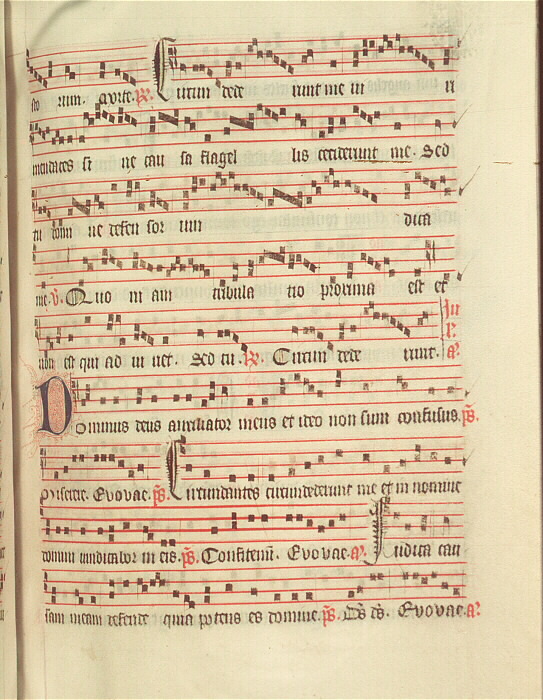 rum. aperte. R. Circum dede runt me ui ri
mendaces si ne cau sa flagel lis ceciderunt me. Sed
tu domi ne defen sor uin dica
me. V. Quo ni am tribula tio proxima est et
non est qui ad iu uet. Sed tu. R. Circum dede runt. a.
Dominus deus auxiliator meus et ideo non sum confusus. ps.
Miserere. Evovae. ps. Circumdantes circumdederunt me et in nomine
domini uindicabor in eis. ps. Confitemi. Evovae. a. Iudica cau
sam meam defende quia potens es domine. ps. Ds ds. Evovae. a.